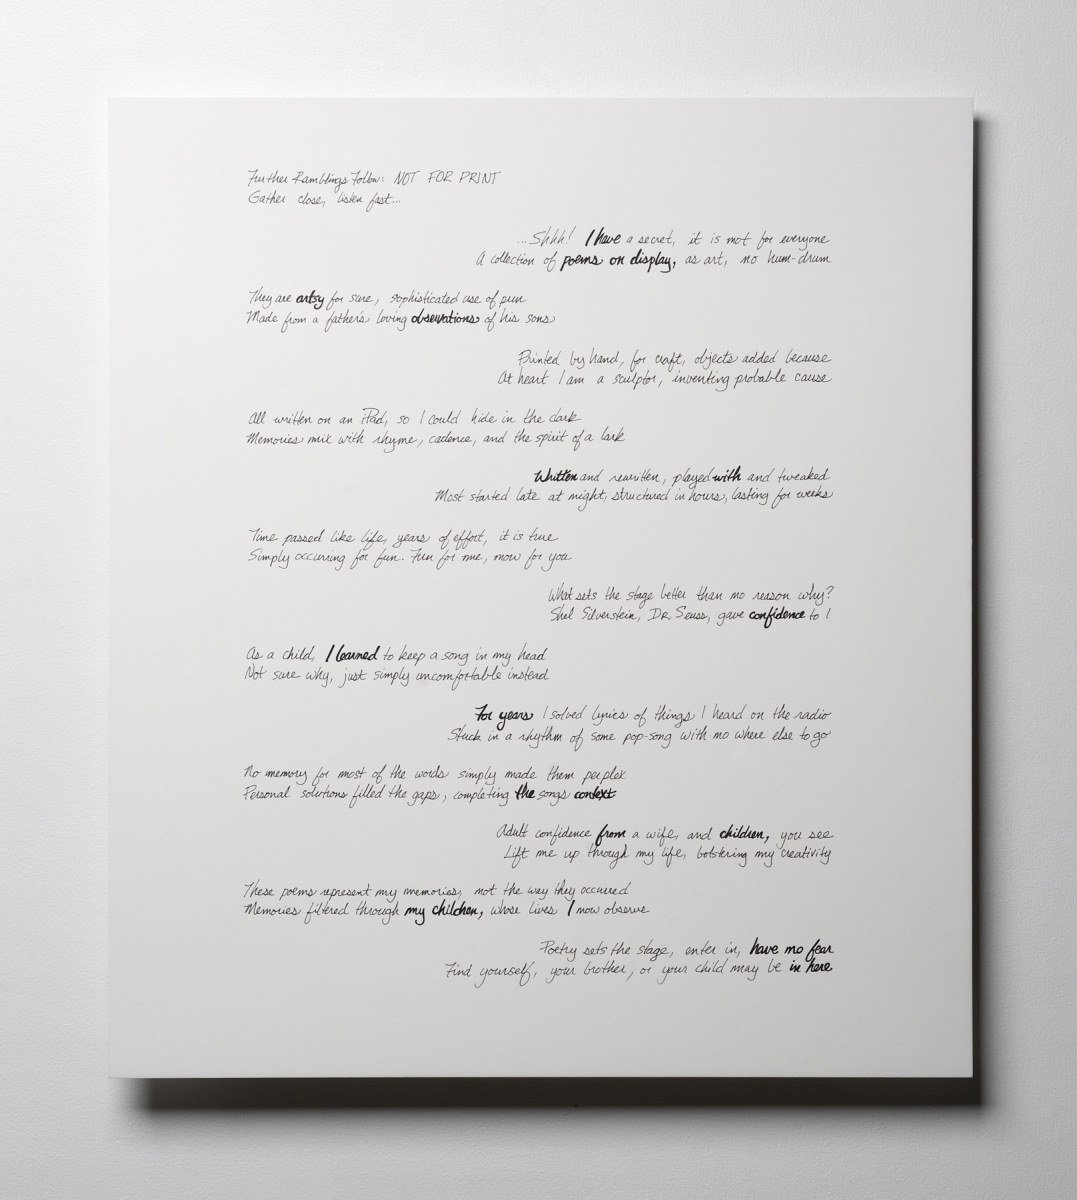 Further Ramblings Follow: NOT FOR PRINT
Gather close, listen fast...
...Shhh! I have a secret, it is not for everyone
A collection of poems on display, as art, no hum-drum
They are artsy for sure, sophisticated use of pun
Made from a father's loving observations of his sons
Printed by hand, for craft, objects added because
At heart I am a sculptor, inventing probable cause
All written on an iPad, so I could hide in the dark
Memories mix with rhyme, cadence, and the spirit of a lark
Written and rewritten, played with and tweaked
Most started late at night, structured in hours, lasting for weeks
Time passed like life, years of effort, it is true
Simply occurring for fun. Fun for me, now for you
What sets the stage better than no reason why?
Shel Silverstein, Dr. Seuss, gave confidence to I
As a child, I learned to keep a song in my head
Not sure why, just simply uncomfortable instead
For years I solved lyrics of things I heard on the radio
Stuck in a rhythm of some pop-song with no where else to go
No memory for most of the words simply made them perplex
Personal solutions filled the gaps, completing the songs context
Adult confidence from a wife, and children, you see
Lift me up through my life, bolstering my creativity
These poems represent my memories, not the way they occurred
Memories filtered through my children, whose lives I now observe
Poetry sets the stage, enter in, have no fear
Find yourself, your brother, or your child may be in here